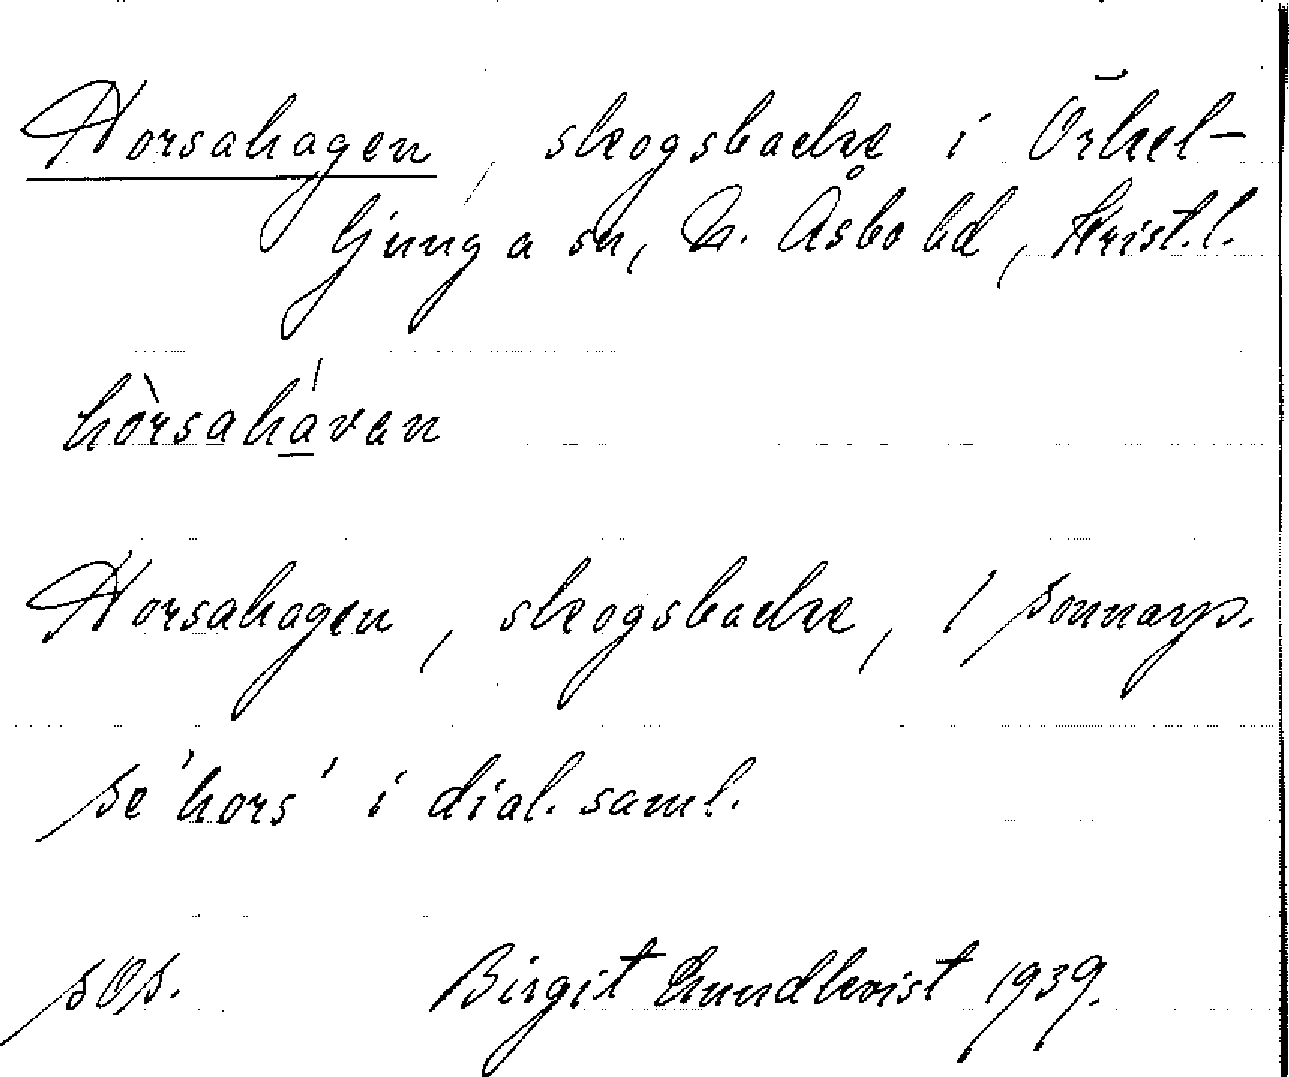 Horsahagen, skogsbacke i Örkel-
ljunga sn, N. Åsbo hd, Krist. l.
hòrsahávan
Horsahagen, skogsbacke, / Sonnarp.
Se 'hors' i dial. saml.
SOS. Birgit Lundkvist 1939.